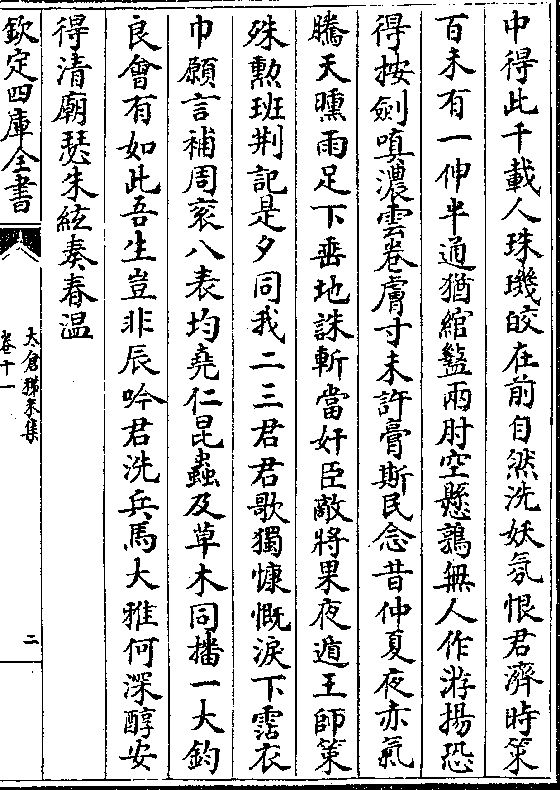 中得此千載人珠璣皎在前自然洗妖氛恨君濟時策
百未有一伸半通猶綰盭兩肘空懸鶉無人作游揚恐
得按劍嗔濃雲卷膚寸未許膏斯民念昔仲夏夜亦氣
騰天曛雨足下垂地誅斬當奸臣敵將果夜遁王師策
殊勲班荆記是夕同我二三君君歌獨慷慨淚下霑衣
巾願言補周衮八表均堯仁昆蟲及草木同播一大鈞
良會有如此吾生豈非辰吟君洗兵馬大雅何深醇安
得清廟瑟朱絃奏春温
欽定四庫全書
太倉稊米集
卷十一
二